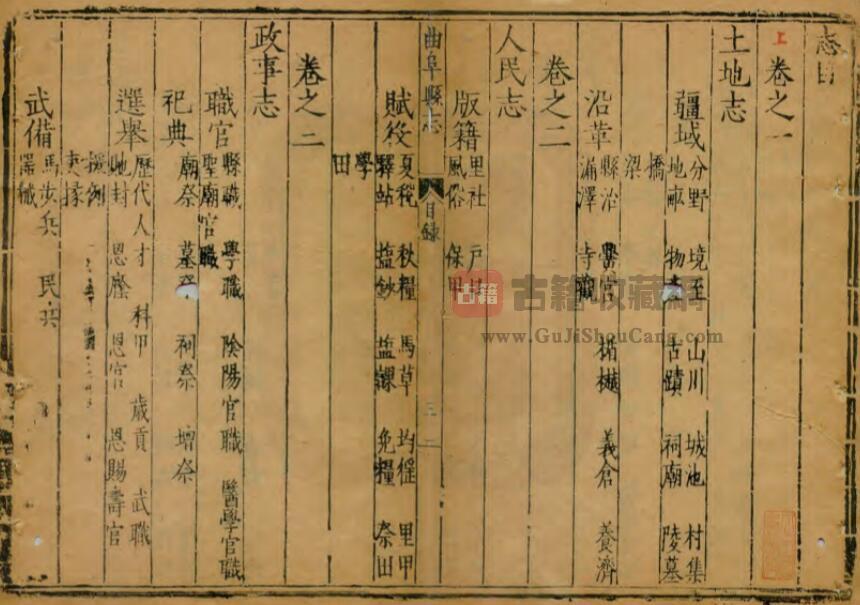 志目
上
卷之一
土地志
疆域 分野 境至 山川 城池 村集
地畝 物產 古蹟 祠廟 陵墓
橋
梁
沿革 縣治 黌官 楯樾 義倉 養濟
漏澤 寺觀
卷之二
人民志
版籍 里社 戶
風俗 保甲
曲阜縣志
目錄
賦役 夏稅 秋糧 馬草 均徭 里甲
驛站 塩鈔 塩課 免糧 祭田
學
田
卷之二
政事志
職官 縣職 學職 陰陽官職 醫學官職
聖廟官職
祀典 廟祭 墓祭 祠祭 壇祭
選舉 歷代人才 科甲 歲貢 武職
貤封 恩廕 恩官 恩賜壽官
援例
吏掾
武備 馬步兵 民兵
器械
古籍
古籍收藏
www.GuJiShouCang.com